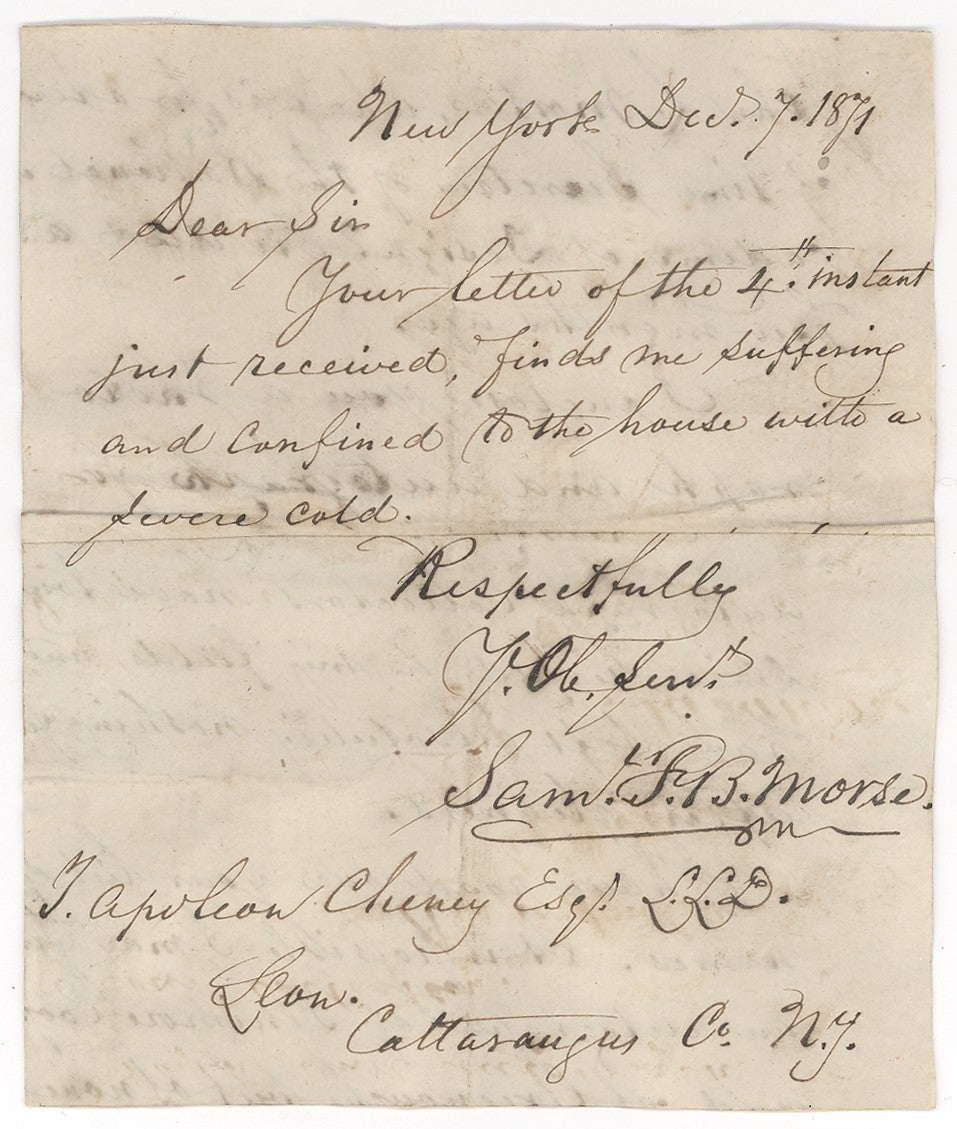 New York Dec. 7. 1871
Dear Sir
Your letter of the 4th. instant
just received, finds me suffering
and confined to the house with a
severe cold.
Respectfully
Y. Ob. Servt.
Saml. F. B. Morse.
T. Apoleon Cheney Esqr. L.L.D.
Leon.
Cattaraugus Co. N.Y.